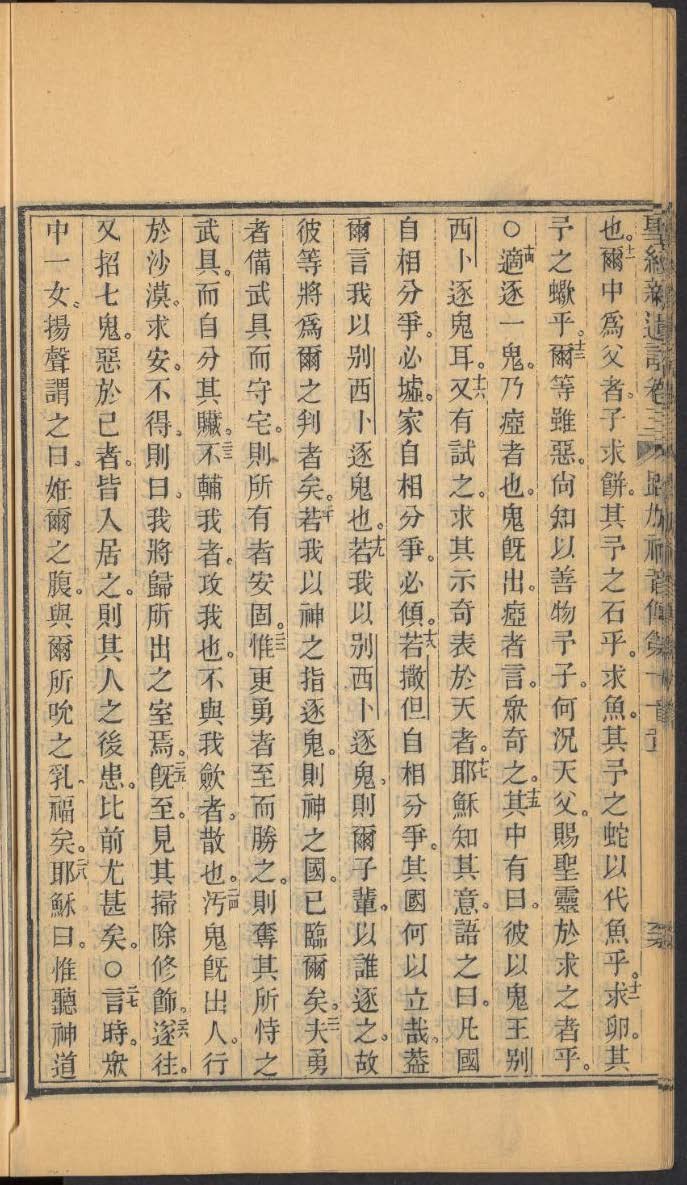 聖經新遺詔卷三 路加福音傳第十一章
也。十一爾中爲父者。子求餅。其予之石乎。求魚。其予之蛇以代魚乎。十二求卵。其
予之蠍乎。十三爾等雖惡。尙知以善物予子。何況天父。賜聖靈於求之者乎。
○十四適逐一鬼。乃瘂者也。鬼旣出。瘂者言。衆奇之。十五其中有曰。彼以鬼王別
西卜逐鬼耳。十六又有試之。求其示奇表於天者。十七耶穌知其意。語之曰。凡國
自相分爭。必墟。家自相分爭。必傾。十八若撒但自相分爭。其國何以立哉。蓋
爾言我以別西卜逐鬼也。十九若我以別西卜逐鬼。則爾子輩。以誰逐之。故
彼等將爲爾之判者矣。二十若我以神之指逐鬼。則神之國。已臨爾矣。二一夫勇
者備武具而守宅。則所有者安固。二二惟更勇者至而勝之。則奪其所恃之
武具。而自分其贓。二三不輔我者。攻我也。不與我歛者。散也。二四汚鬼旣出人。行
於沙漠。求安。不得。則曰。我將歸所出之室焉。二五旣至。見其掃除修飾。二六遂往。
又招七鬼。惡於己者。皆入居之。則其人之後患。比前尤甚矣。○二七言時。衆
中一女。揚聲謂之曰。姙爾之腹。與爾所吮之乳。福矣。二八耶穌曰。惟聽神道